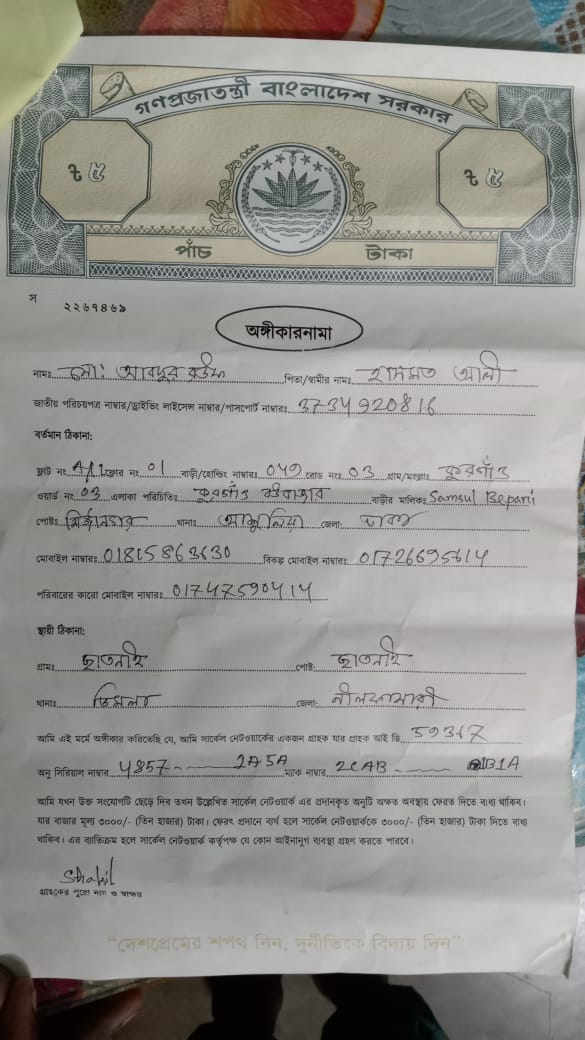 গণপ্রজাতন্ত্রী বাংলাদেশ সরকার
৳ ৫ ৳ ৫
পাঁচ টাকা
স ২২৬৭৪৬৯
অঙ্গীকারনামা
নামঃ মোঃ আবদুর রউফ পিতা/স্বামীর নামঃ হাসমত আলী
জাতীয় পরিচয়পত্র নাম্বার/ড্রাইভিং লাইসেন্স নাম্বার/পাসপোর্ট নাম্বারঃ 3734920816
বর্তমান ঠিকানা:
ফ্লাট নং A/1 ফ্লোর নং 01 বাড়ী/হোল্ডিং নাম্বারঃ 049 রোড নংঃ 03 গ্রাম/মহল্লাঃ কুরগাঁও
ওয়ার্ড নং 03 এলাকা পরিচিতিঃ কুরগাঁও বউবাজার বাড়ীর মালিকঃ Samsul Bepari
পোষ্টঃ মির্জানগর থানাঃ আশুলিয়া জেলা: ঢাকা
মোবাইল নাম্বারঃ 01815863630 বিকল্প মোবাইল নাম্বারঃ 01726695614
পরিবারের কারো মোবাইল নাম্বারঃ 01747590414
স্থায়ী ঠিকানা:
গ্রামঃ ছাতনাই পোষ্ট: ছাতনাই
থানাঃ ডিমলা জেলা: নীলফামারী
আমি এই মর্মে অঙ্গীকার করিতেছি যে, আমি সার্কেল নেটওয়ার্কের একজন গ্রাহক যার গ্রাহক আই ডি 59317
অনু সিরিয়াল নাম্বার 4857 2A5A ম্যাক নাম্বার 2CAB B1A
আমি যখন উক্ত সংযোগটি ছেড়ে দিব তখন উল্লেখিত সার্কেল নেটওয়ার্ক এর প্রদানকৃত অনুটি অক্ষত অবস্থায় ফেরত দিতে বাধ্য থাকিব।
যার বাজার মূল্য ৩০০০/- (তিন হাজার) টাকা। ফেরৎ প্রদানে ব্যর্থ হলে সার্কেল নেটওয়ার্ককে ৩০০০/- (তিন হাজার) টাকা দিতে বাধ্য
থাকিব। এর ব্যতিক্রম হলে সার্কেল নেটওয়ার্ক কর্তৃপক্ষ যে কোন আইনানুগ ব্যবস্থা গ্রহণ করতে পারবে।
গ্রাহকের পুরো নাম ও স্বাক্ষর
“দেশপ্রেমের শপথ নিন, দুর্নীতিকে বিদায় দিন”